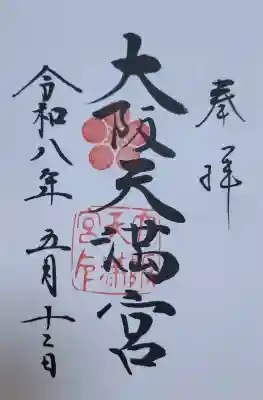 奉拝
大阪天満宮
令和八年 五月十二日